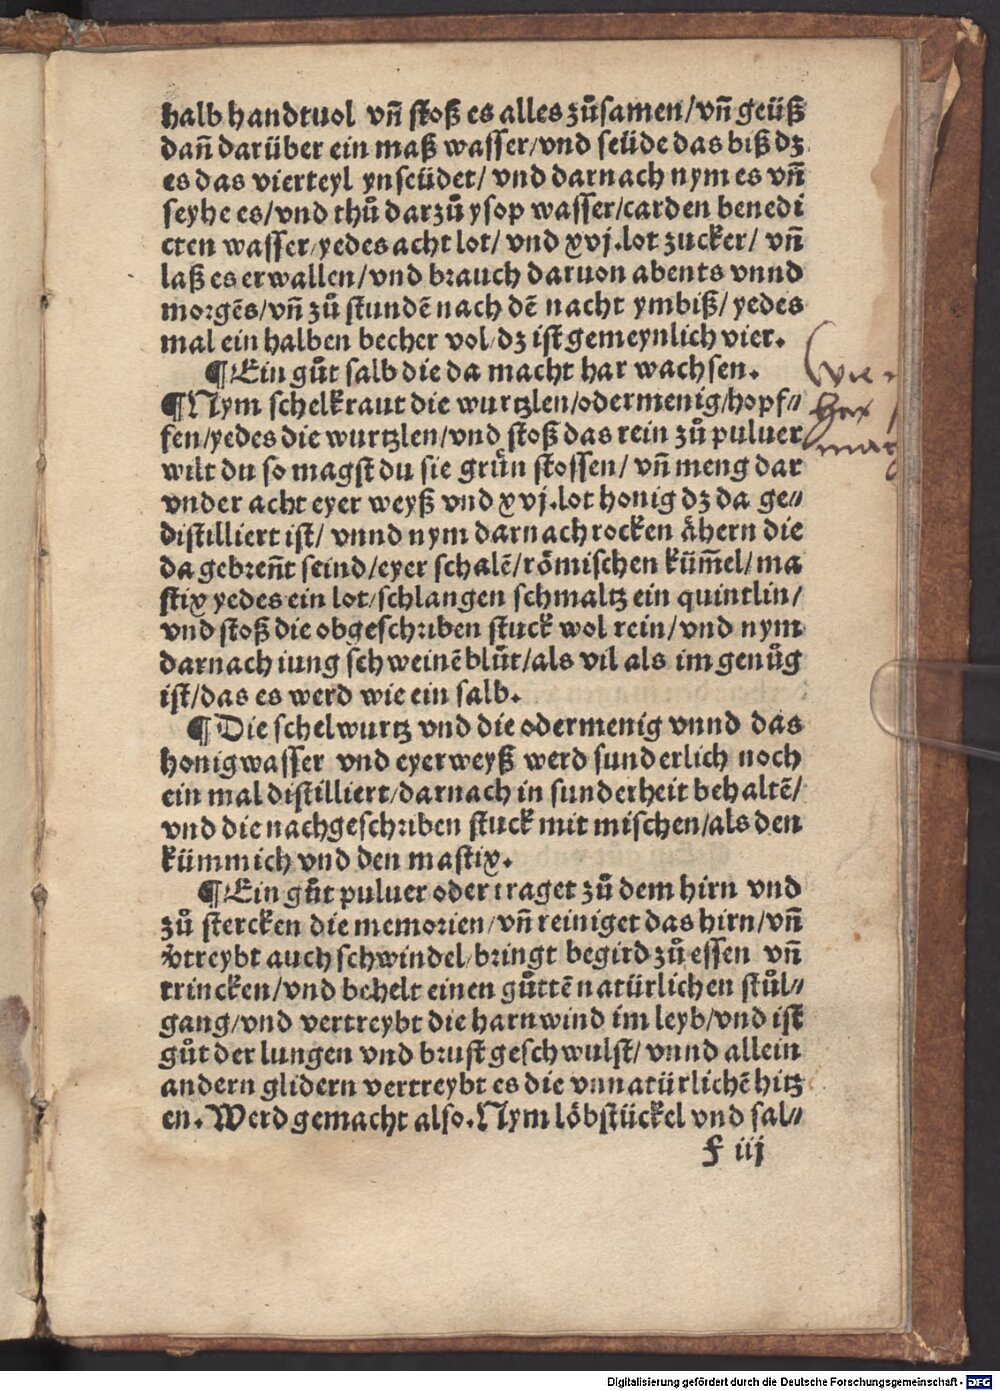 halb handtuol vn̄ stoß es alles zůsamen/vn̄ geüß
dan̄ darüber ein maß wasser/vnd seüde das biß dz
es das vierteyl ynseüdet/ vnd darnach nym es vn̄
seyhe es/vnd thů darzů ysop wasser/carden benedi
cten wasser/yedes acht lot/ vnd xvj.lot zucker/ vn̄
laß es erwallen/vnd brauch daruon abents vnnd
morgēs/vn̄ zů stundē nach dē nacht ymbiß/ yedes
mal ein halben becher vol/dz ist gemeynlich vier.
¶Ein gůt salb die da macht har wachsen.
¶Nym schelkraut die wurtzlen/odermenig/hopf⸗
fen/yedes die wurtzlen/vnd stoß das rein zů puluer
wilt du so magst du sie grůn stossen/ vn̄ meng dar
vnder acht eyer weyß vnd xvj.lot honig dz da ge⸗
distilliert ist/ vnnd nym darnach rocken åhern die
da gebren̄t seind/eyer schalē/römischen küm̄el/ma
stix yedes ein lot/schlangen schmaltz ein quintlin/
vnd stoß die obgeschriben stuck wol rein/vnd nym
darnach iung schweinē blůt/als vil als im genůg
ist/das es werd wie ein salb.
¶Die schelwurtz vnd die odermenig vnnd das
honigwasser vnd eyerweyß werd sunderlich noch
ein mal distilliert/darnach in sunderheit behaltē/
vnd die nachgeschriben stuck mit mischen/als den
kümmich vnd den mastix.
¶Ein gůt puluer oder traget zů dem hirn vnd
zů stercken die memorien/vn̄ reiniget das hirn/vn̄
v̓treybt auch schwindel/bringt begird zů essen vn̄
trincken/vnd behelt einen gůttē natürlichen stůl⸗
gang/vnd vertreybt die harnwind im leyb/vnd ist
gůt der lungen vnd brust geschwulst/ vnnd allein
andern glidern vertreybt es die vnnatürlichē hitz
en. Werd gemacht also. Nym löbstückel vnd sal⸗
f iij
Digitalisierung gefördert durch die Deutsche Forschungsgemeinschaft - DFG